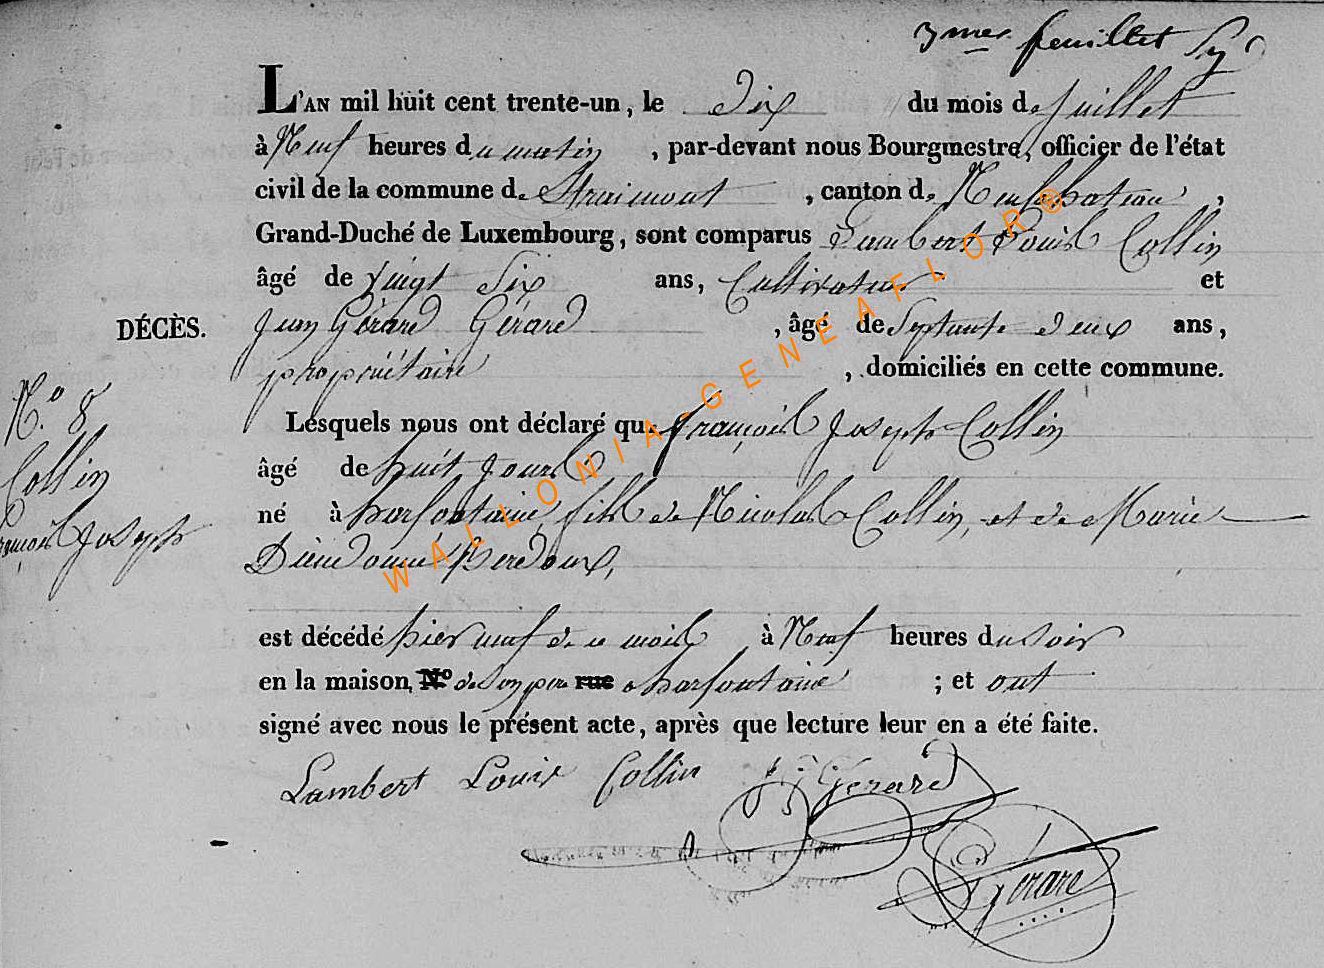 3mes feuillet
L'AN mil huit cent trente-un, le Dix du mois de Juillet
à Neuf heures du matin, par-devant nous Bourgmestre, officier de l'état
civil de la commune de Straimont, canton de Neufchateau,
Grand-Duché de Luxembourg, sont comparus Lambert Louis Collin
âgé de vingt Six ans, Cultivateur et
Jean Gérard Gérard, âgé de Septante deux ans,
propriétaire, domiciliés en cette commune.
DÉCÈS.
N.º 8
Collin
françois Joseph
Lesquels nous ont déclaré que françois Joseph Collin
âgé de huit Jours
né à harfontaine, fils de Nicolas Collin, et de Marie
Dieudonné Perdoux,
est décédé hier neuf de ce mois à Neuf heures du soir
en la maison, Nº de son père rue a harfontaine ; et ont
signé avec nous le présent acte, après que lecture leur en a été faite.
Lambert Louis Collin J G Gérard
Gérard
WALLONIA-GENEAFLOR®